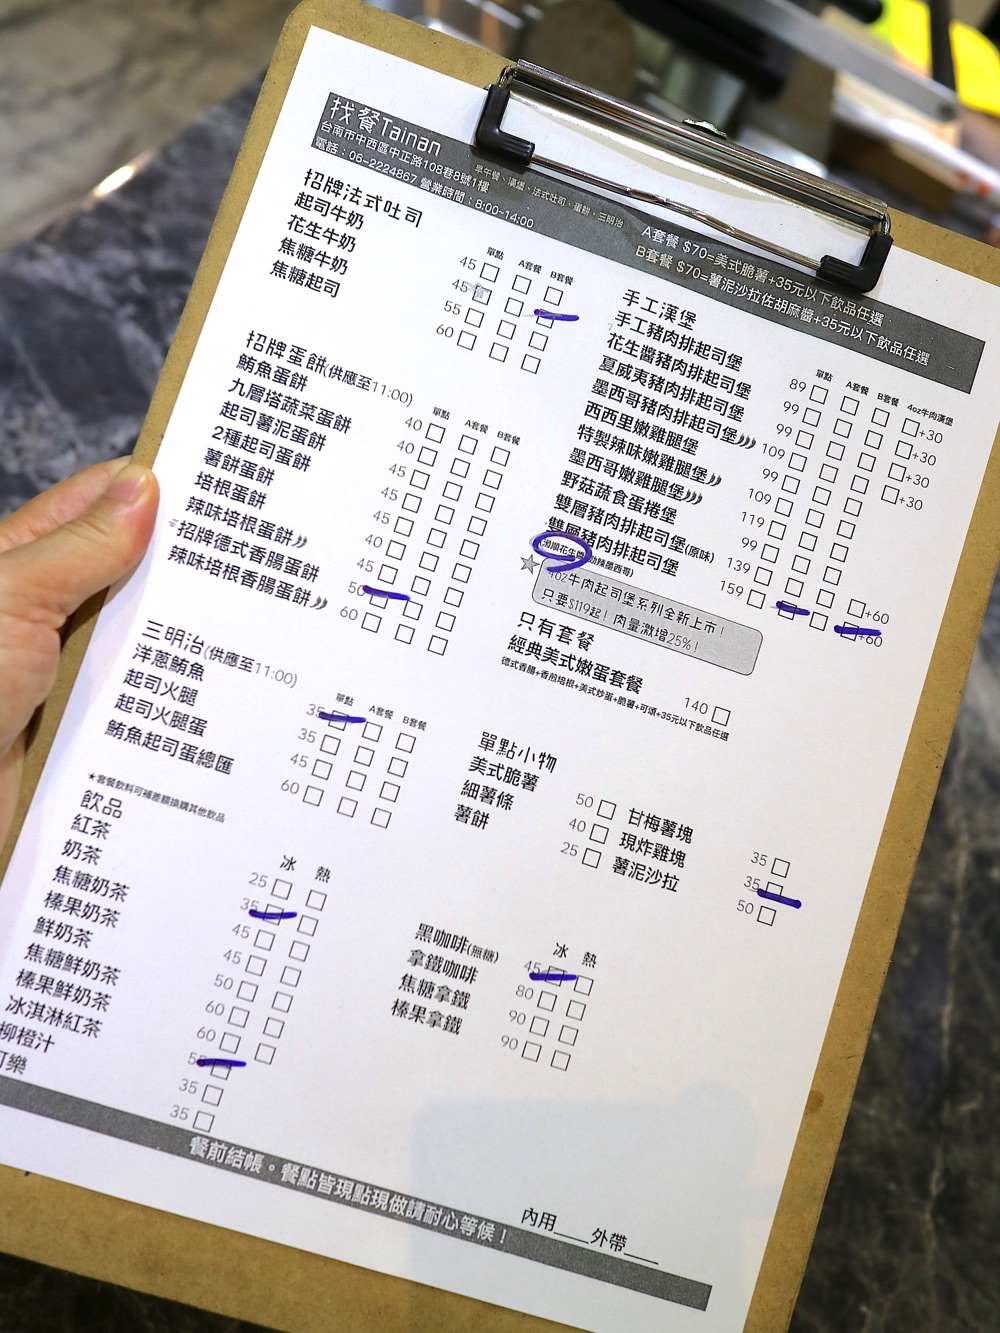 找餐Tainan
台南市中西區中正路108巷8號1樓
早午餐、漢堡、法式吐司、蛋餅、三明治
電話：06-2224867 營業時間：8:00~14:00
A套餐 $70=美式脆薯+35元以下飲品任選
B套餐 $70=薯泥沙拉佐胡麻醬+35元以下飲品任選
招牌法式吐司
單點 A套餐 B套餐
起司牛奶 45
花生牛奶 45
焦糖牛奶 55
焦糖起司 60
招牌蛋餅(供應至11:00)
單點 A套餐 B套餐
鮪魚蛋餅 40
九層塔蔬菜蛋餅 40
起司薯泥蛋餅 45
2種起司蛋餅 45
薯餅蛋餅 45
培根蛋餅 40
辣味培根蛋餅 45
招牌德式香腸蛋餅 50
辣味培根香腸蛋餅 60
三明治(供應至11:00)
單點 A套餐 B套餐
洋蔥鮪魚 35
起司火腿 35
起司火腿蛋 45
鮪魚起司蛋總匯 60
★套餐飲料可補差額換購其他飲品
飲品
冰 熱
紅茶 25
奶茶 35
焦糖奶茶 45
榛果奶茶 45
鮮奶茶 50
焦糖鮮奶茶 60
榛果鮮奶茶 60
冰淇淋紅茶 55
柳橙汁 35
可樂 35
手工漢堡
單點 A套餐 B套餐 4oz牛肉漢堡
手工豬肉排起司堡 89 +30
花生醬豬肉排起司堡 99 +30
夏威夷豬肉排起司堡 99 +30
墨西哥豬肉排起司堡 109 +30
西西里嫩雞腿堡 99
特製辣味嫩雞腿堡 109
墨西哥嫩雞腿堡 119
野菇蔬食蛋捲堡 99
雙層豬肉排起司堡(原味) 139 +60
雙層豬肉排起司堡 159 +60
(滑順花生醬/勁辣墨西哥)
4oz牛肉起司堡系列全新上市！
只要$119起！肉量激增25%！
只有套餐
經典美式嫩蛋套餐 140
德式香腸+香煎培根+美式炒蛋+脆薯+可頌+35元以下飲品任選
單點小物
美式脆薯 50
細薯條 40
薯餅 25
甘梅薯塊 35
現炸雞塊 35
薯泥沙拉 50
冰 熱
黑咖啡(無糖) 45
拿鐵咖啡 80
焦糖拿鐵 90
榛果拿鐵 90
餐前結帳。餐點皆現點現做請耐心等候！
內用____外帶____